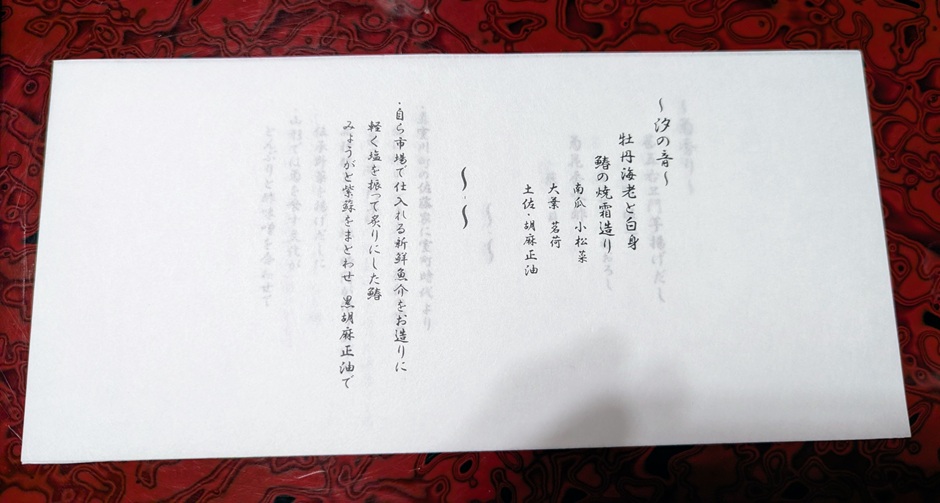 〜汐の音〜
牡丹海老と白身
鰆の焼霜造り
南瓜 小松菜
大葉 茗荷
土佐・胡麻正油
〜・〜
・自ら市場で仕入れる新鮮魚介をお造りに
軽く塩を振って炙りにした鰆
みょうがと紫蘇をまとわせ 黒胡麻正油で